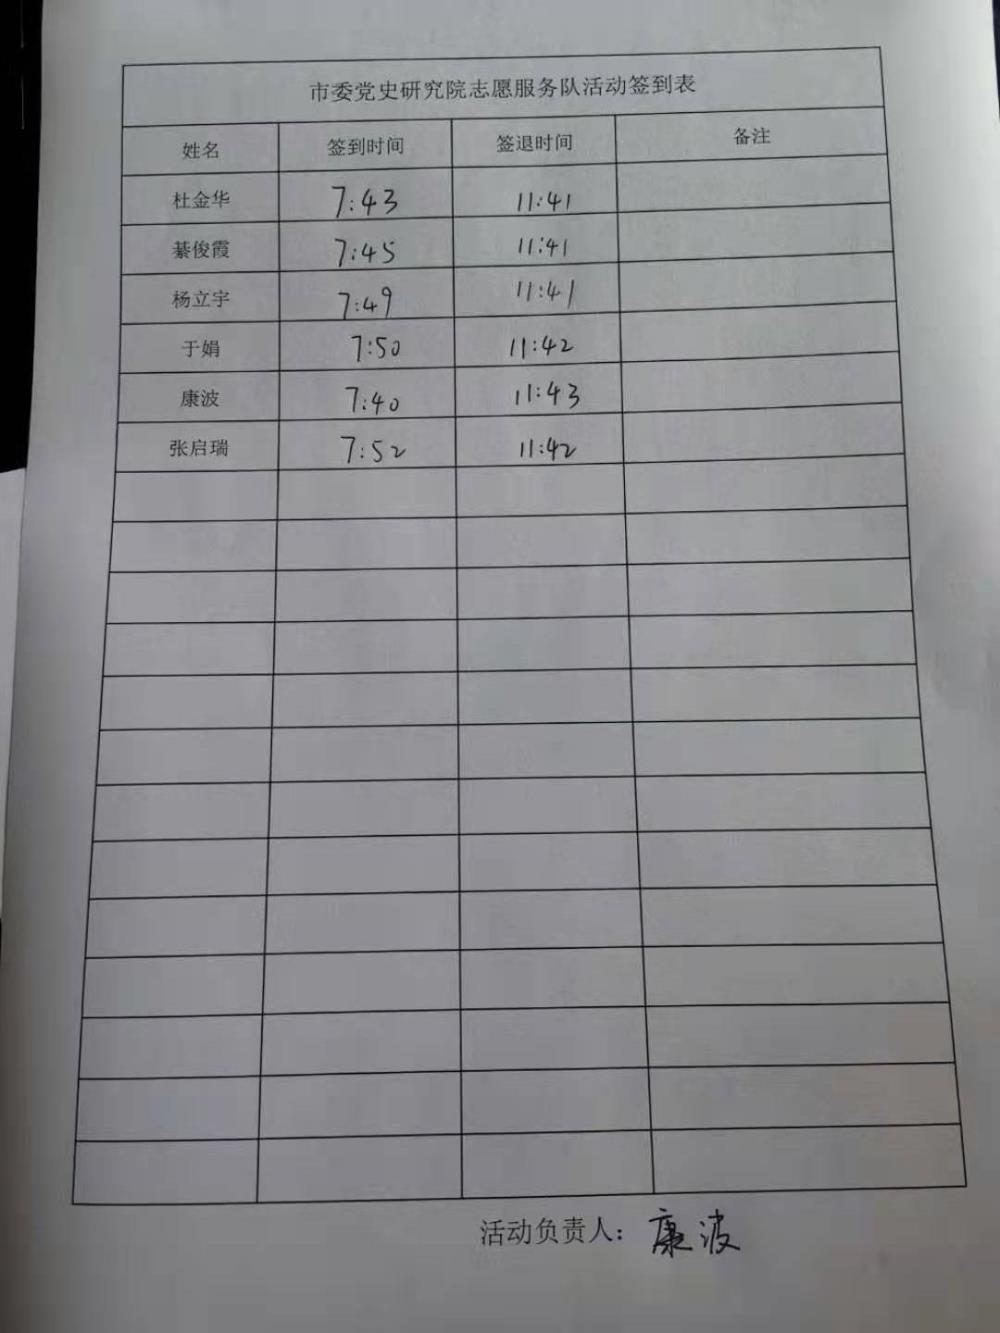 市委党史研究院志愿服务队活动签到表
姓名 签到时间 签退时间 备注
杜金华 7:43 11:41
綦俊霞 7:45 11:41
杨立宇 7:49 11:41
于娟 7:50 11:42
康波 7:40 11:43
张启瑞 7:52 11:42
活动负责人：康波